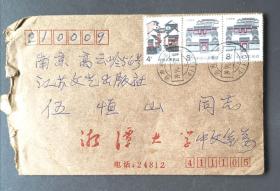 210009
南京高云岭56号
江苏文艺出版社
伍恒山 同志
湘潭大学中文系
电话:24812 411105